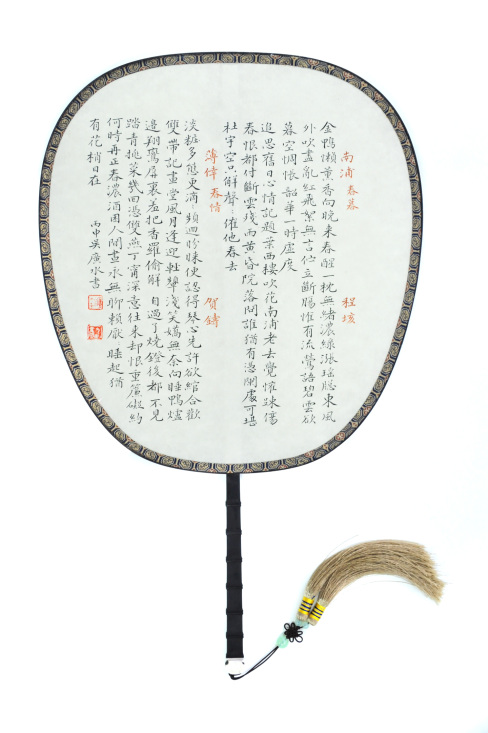 南浦 春暮 程垓
金鴨懶薰香向晚來春酲一枕無緒濃綠漲瑤牕東風
外吹盡亂紅飛絮無言佇立斷腸惟有流鶯語碧雲欲
暮空惆悵韶華一時虛度
追思舊日心情記題葉西樓吹花南浦老去覺懽疎傷
春恨都付斷雲殘雨黃昏院落問誰猶有憑闌處可堪
杜宇空只解聲〻催他春去
薄倖 春情 賀鑄
淡糚多態更滴〻頻迴盼睞便認得琴心先許欲綰合歡
雙帶記畫堂風月逢迎輕顰淺笑嬌無奈向睡鴨爐
邊翔鸞屏裏羞把香羅偷解 自過了燒鐙後都不見
踏青挑菜幾回憑雙燕丁甯深意往來却恨重簾礙約
何時再正春濃酒困人閒晝永無聊賴厭〻睡起猶
有花梢日在
丙申吳廣水書